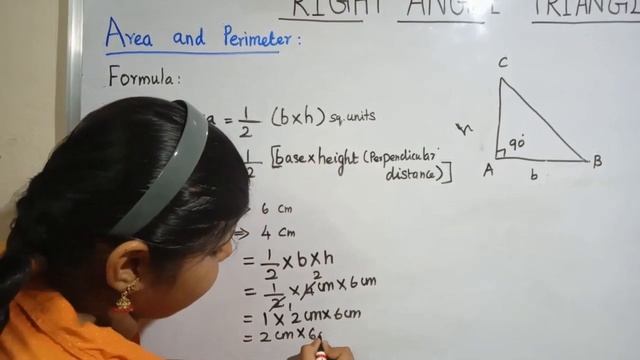 RIGHT ANGLE TRIANGL
Area and Perimeter:
Formula:
= 1/2 (b×h) sq.units
1/2 [base×height (Perpendicular
distance)]
6 cm
⇒ 4 cm
= 1/2 × b × h
= 1/2 × 4 2 cm × 6 cm
= 1 × 2 cm × 6 cm
= 2 cm × 6
C
h
90°
A
b
B